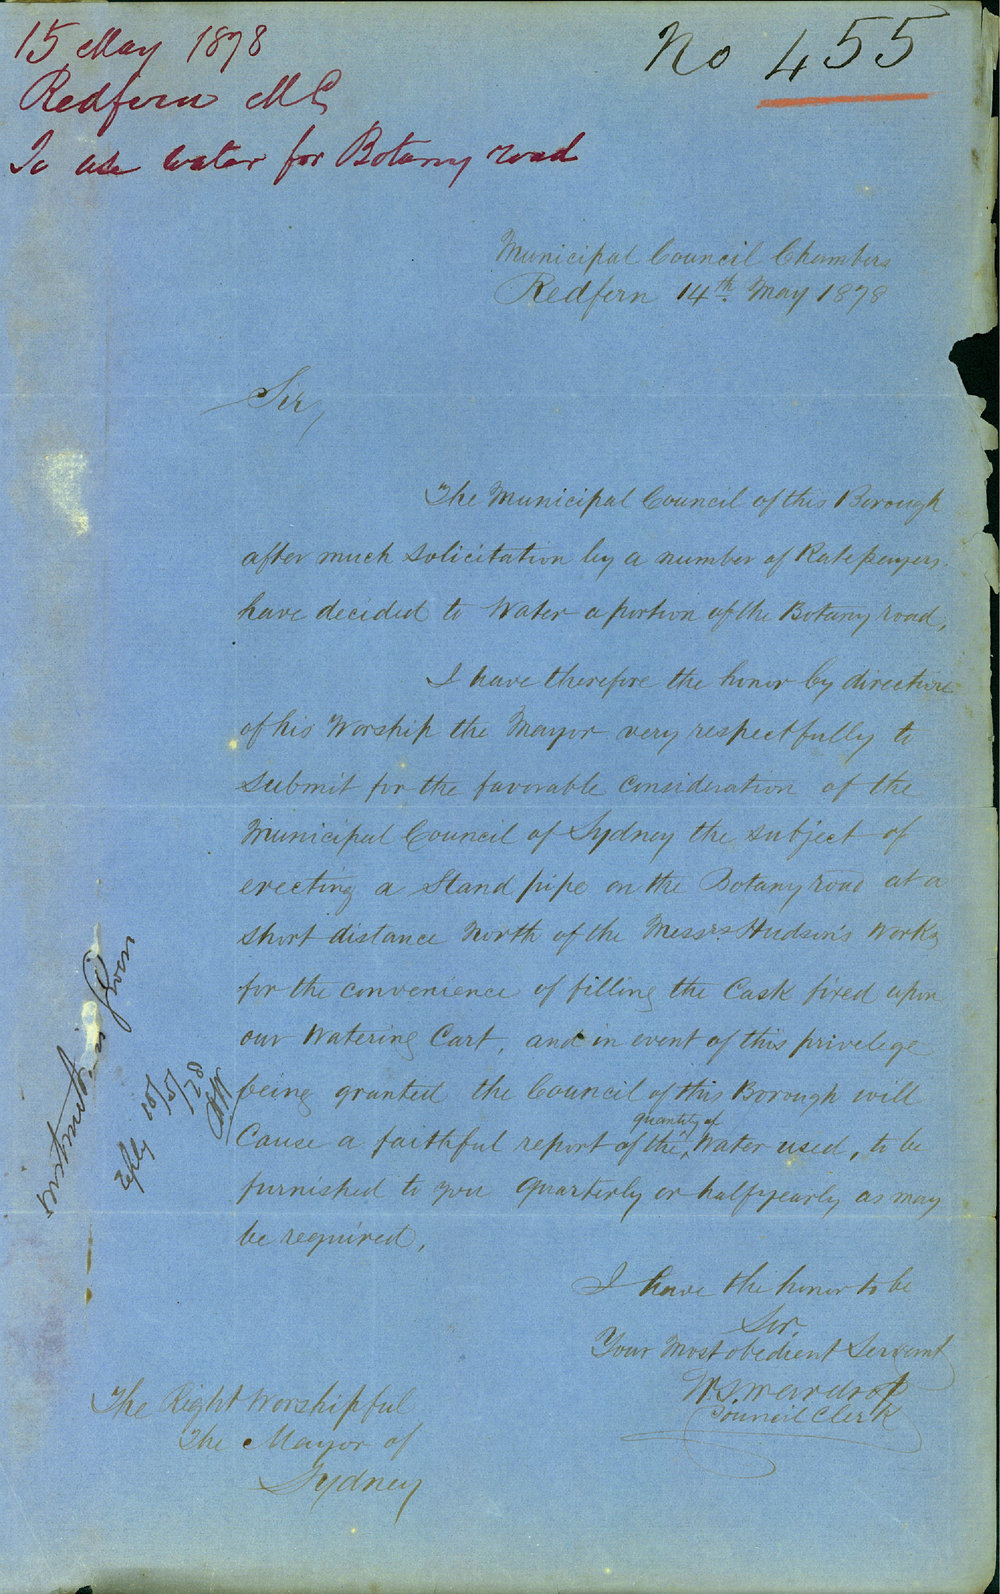 15 May 1878
Redfern M C
To use water for Botany road
No 455
Municipal Council Chambers
Redfern 14th May 1878
Sir,
The Municipal Council of this Borough
after much solicitation by a number of Ratepayers
have decided to Water a portion of the Botany road,
I have therefore the honor by direction
of his Worship the Mayor very respectfully to
submit for the favorable consideration of the
Municipal Council of Sydney the subject of
erecting a Stand pipe on the Botany road at a
short distance North of the Messrs Hudson's Works
for the convenience of filling the Cask fixed upon
our Watering Cart, and in event of this privelege
being granted the Council of this Borough will
quantity of
Cause a faithful report of the Water used, to be
furnished to you quarterly or halfyearly as may
be required,
I have the honor to be
Sir,
Your Most obedient Servant
W.S. Wardrop
Council Clerk
The Right Worshipful
The Mayor of
Sydney
Instructions Given
reply 16/5/78